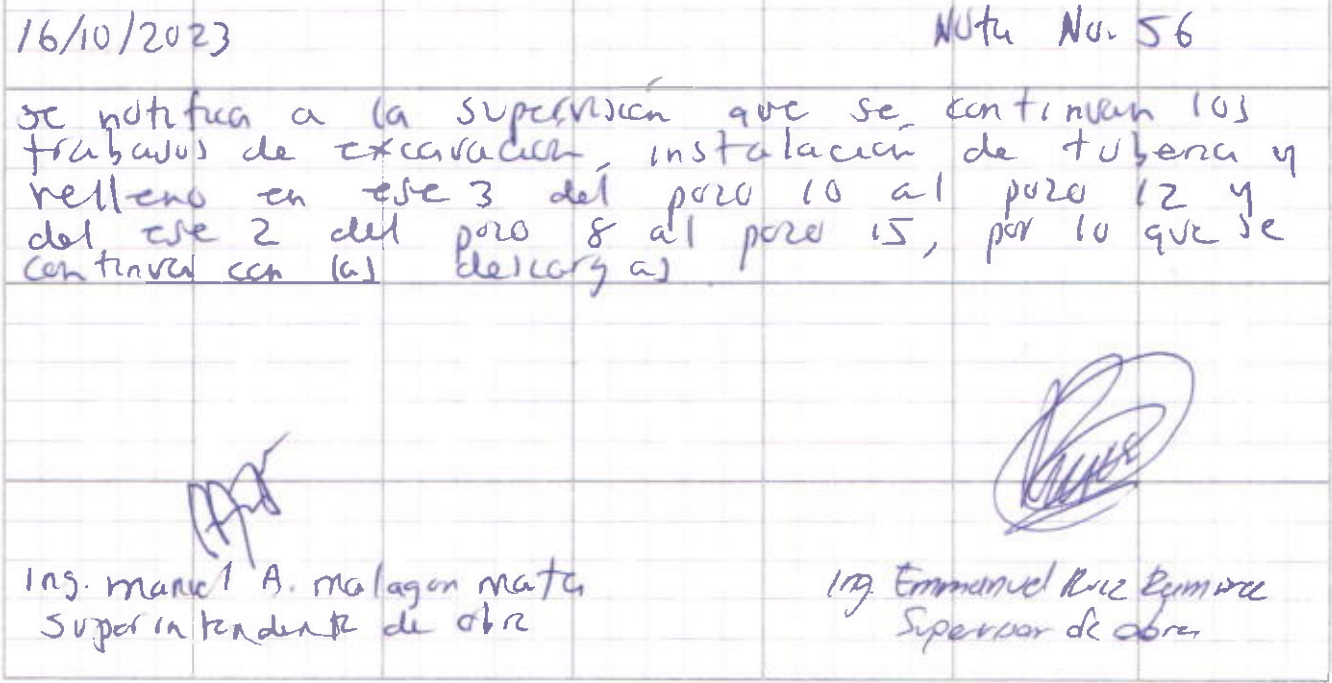 16/10/2023 Nota No. 56
se notifica a la supervisión que se continuan los
trabajos de excavación, instalación de tuberia y
relleno en eje 3 del pozo 10 al pozo 12 y
del eje 2 del pozo 8 al pozo 15, por lo que se
continua con las descargas
Ing. Manuel A. Malagon Mata Ing. Emmanuel Ruiz Ramirez
Superintendente de obra Supervisor de obra